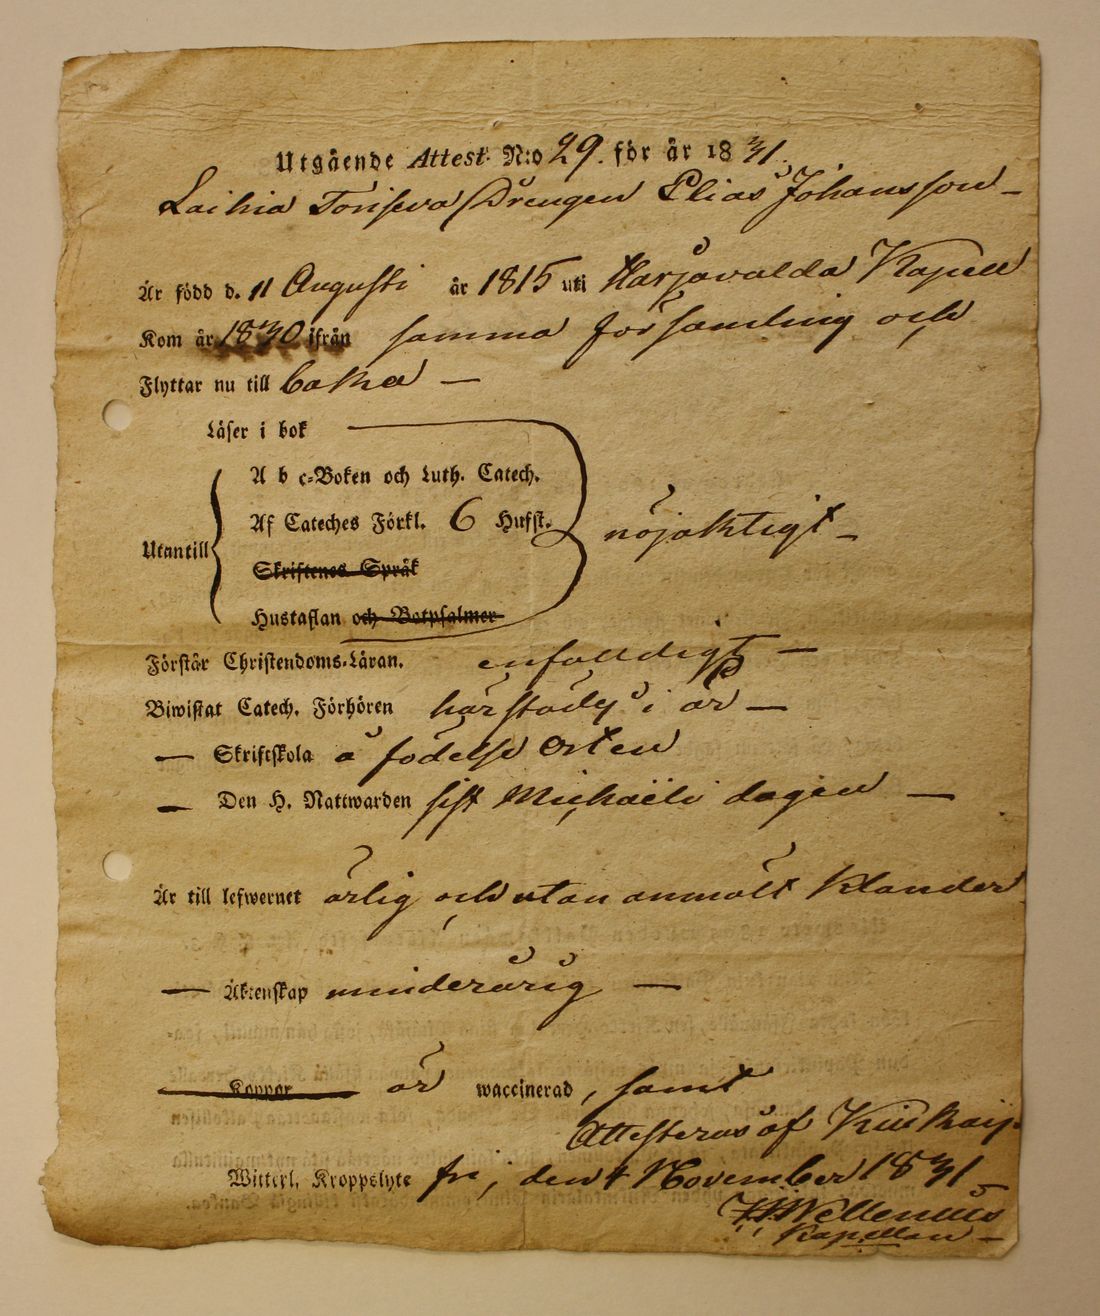 Utgående Attest N:o 29. för år 1831.
Laihia Torseva Drengen Elias Johansson
Är född d. 11 Augusti år 1815 uti Harjavalda Kapell
Kom år 1830 ifrån samma församling och
Flyttar nu till baka
Läser i bok
A b c-Boken och Luth. Catech.
Af Cateches Förkl. 6 Hufst. nöjaktigt
Utantill
Skriftenes Språk
Hustaflan och Botpsalmer
Förstår Christendoms-Läran. enfalldigt
Biwistat Catech. Förhören härstädes i år
— Skriftskola å födelse Orten
— Den H. Nattwarden sist Michaëli dagen
Är till lefwernet ärlig och utan anmält klander
— Äktenskap minderårig
Koppor är waccinerad, samt
Attesteras af
Witterl. Kroppslyte fri, den 4 November 1831
Wellenius
Kapellan